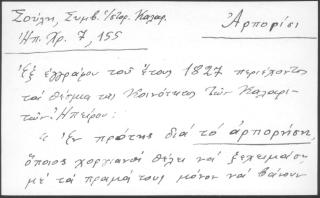 Σούλη, Συμβ. ἱστορ. Καλαρ. Ἀρπορίσι
Ἠπ. Χρ. 7, 155
Ἐξ ἐγγράφου τοῦ ἔτους 1827 περιέχοντος
τὰ θέσιμα τῆς Κοινότητος τῶν Καλαρι-
τῶν Ἠπείρου:
"ἐν πρώτης διὰ τὸ ἀρπορήση,
ὅποιος χοργιανὸς θέλει νὰ ξεχειμάση
μὲ τὰ πράματά τους μόνον νὰ βάνουν